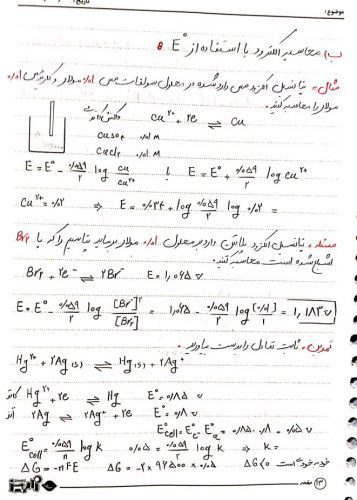 موضوع :
تاریخ :
ب) محاسبه الکترود با استفاده از E° :
مثال = پتانسیل الکترود مس وارد شده در محلول سولفات مس ۰/۰۱ مولار و کلرید مس ۰/۰۱
مولار را محاسبه کنید.
Cu²⁺ + 2e ⇌ Cu
CuSO4 0.01 M
CuCl2 0.01 M
E = E° - 0/059/2 log Cu/Cu²⁺ یا E = E° + 0/059/2 log Cu²⁺
Cu²⁺ = 0/02 ⇒ E = 0/034 + log 0/059/2 log 0/02 =
مسئله = پتانسیل الکترود پلاتین دارد در محلول ۰/۰۱ مولار برمید پتاسیم را که با Br2
اشباع شده است محاسبه کنید.
Br2 + 2e⁻ ⇌ 2Br⁻ E = 1/065 v
E = E° - 0/059/2 log [Br⁻]²/[Br2] = 1/065 - 0/059/2 log [0/01]/1 = 1/183 v
تمرین = ثابت تعادل را بدست بیاورید.
Hg²⁺ + 2Ag(s) ⇌ Hg(s) + 2Ag⁺
کاتد Hg²⁺ + 2e ⇌ Hg E° = 0/85 v
آند 2Ag ⇌ 2Ag⁺ + 2e E° = 0/8 v
E°cell = E°c - E°a = 0/85 - 0/8 = 0/05 v
E°cell = 0/059/n log K 0/05 = 0/059/2 log K ⇒ K =
ΔG = -nFE ΔG = -2 × 96500 × 0/05 ΔG < 0 خود به خودی است
صفحه: ۱۳